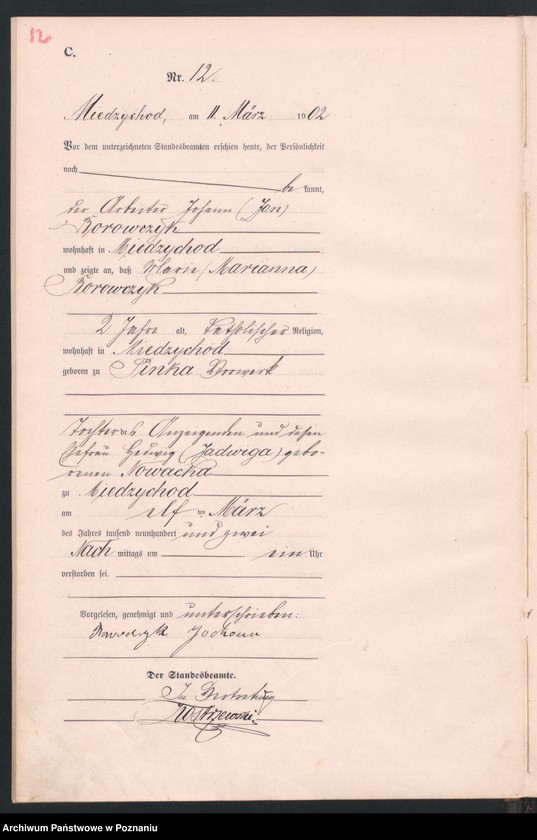 12
C.
Nr. 12.
Miedzychod, am 11. März 1902
Vor dem unterzeichneten Standesbeamten erschien heute, der Persönlichkeit
nach be kannt,
der Arbeiter Johann (Jan)
Borowczyk
wohnhaft in Miedzychod
und zeigte an, daß Marie (Marianna)
Borowczyk
2 Jahre alt, katholischer Religion,
wohnhaft in Miedzychod
geboren zu Pinka Vorwerk
Tochter des Anzeigenden und dessen
Ehefrau Hedwig (Jadwiga) gebo-
renen Nowacka
zu Miedzychod
am elf ten März
des Jahres tausend neunhundert und zwei
Nach mittags um ein Uhr
verstorben sei.
Vorgelesen, genehmigt und unterschrieben:
Der Standesbeamte.
In Vertretung
Archiwum Państwowe w Poznaniu